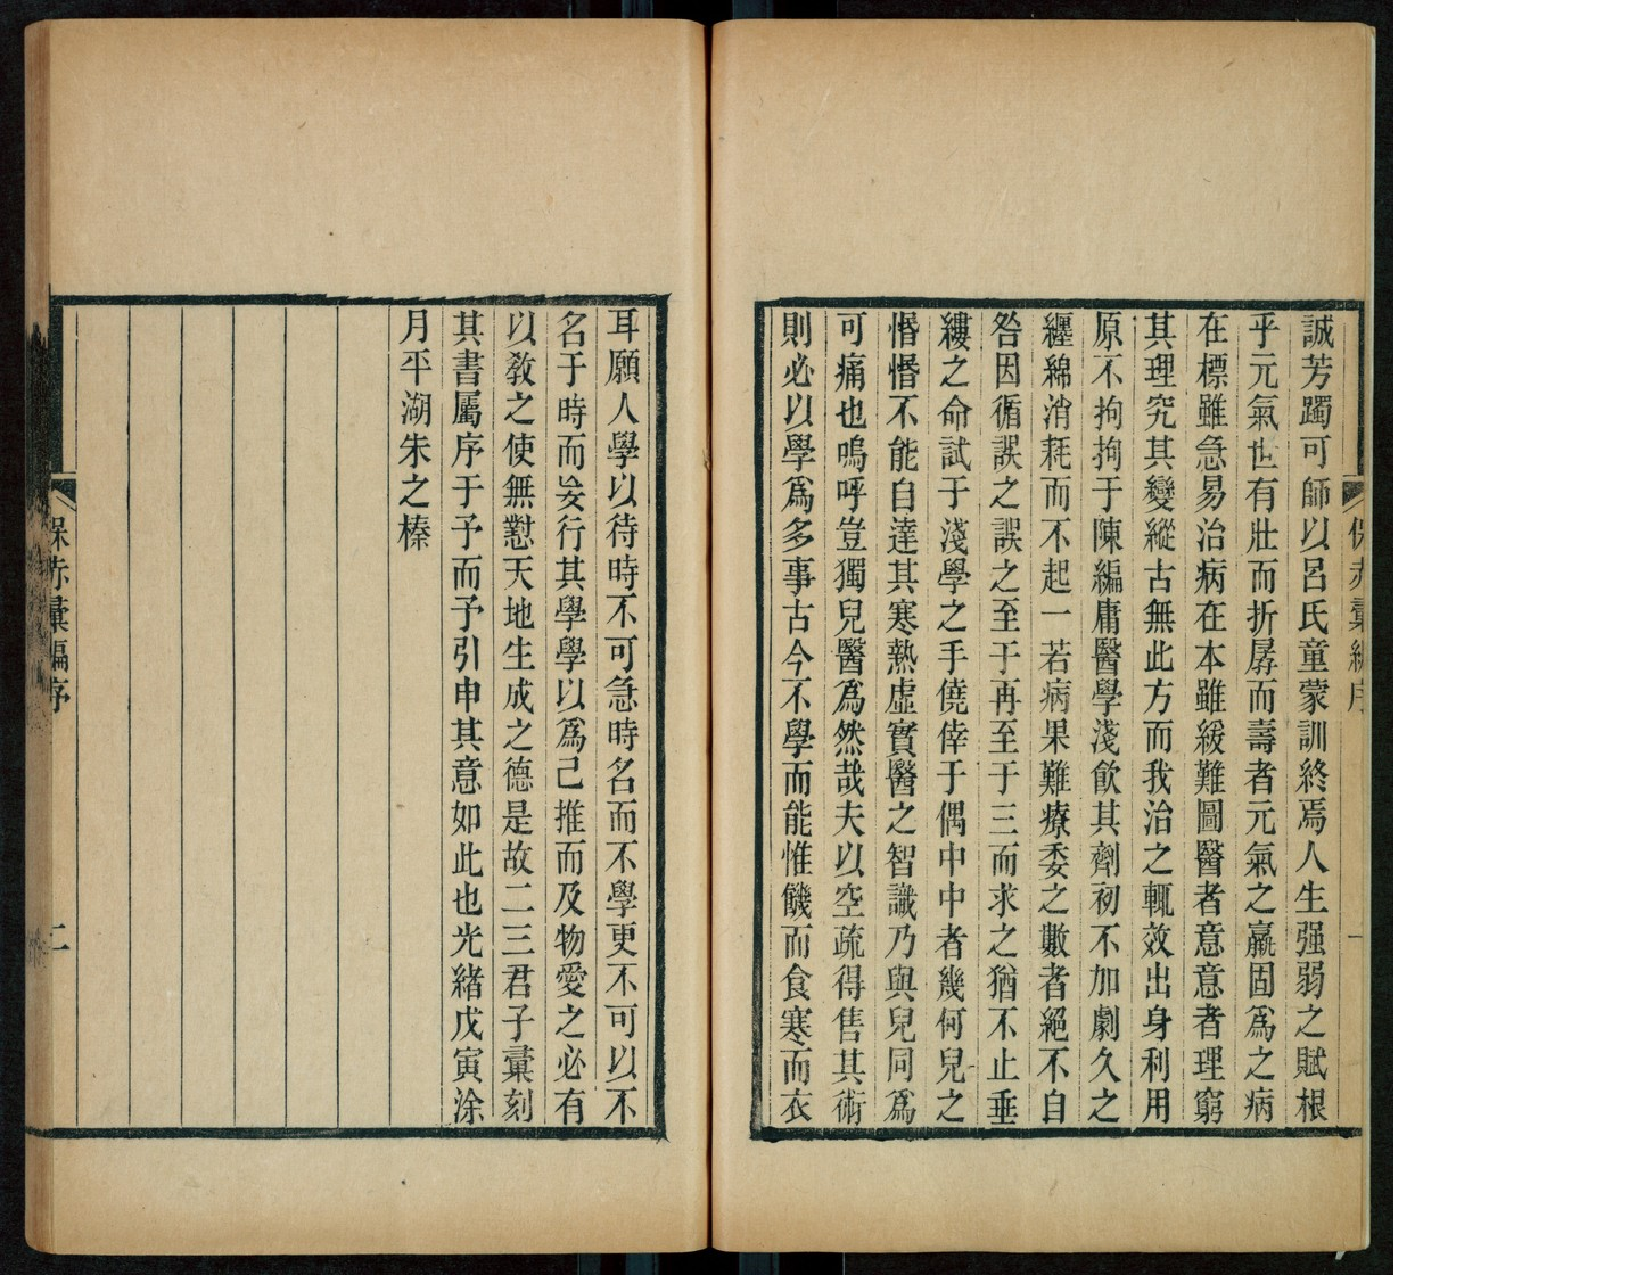 保赤彙編序
一
誠芳躅可師以呂氏童蒙訓終焉人生强弱之賦根
乎元氣世有壯而折孱而壽者元氣之羸固爲之病
在標雖急易治病在本雖緩難圖醫者意意者理窮
其理究其變縱古無此方而我治之輒效出身利用
原不拘拘于陳編庸醫學淺飮其劑初不加劇久之
纏綿消耗而不起一若病果難療委之數者絕不自
咎因循誤之誤之至于再至于三而求之猶不止垂
縷之命試于淺學之手僥倖于偶中中者幾何兒之
惛惛不能自達其寒熱虛實醫之智識乃與兒同爲
可痛也嗚呼豈獨兒醫爲然哉夫以空疏得售其術
則必以學爲多事古今不學而能惟饑而食寒而衣
耳願人學以待時不可急時名而不學更不可以不
名于時而妄行其學學以爲己推而及物愛之必有
以敎之使無懟天地生成之德是故二三君子彙刻
其書屬序于予而予引申其意如此也光緖戊寅涂
月平湖朱之榛
保赤彙編序
二